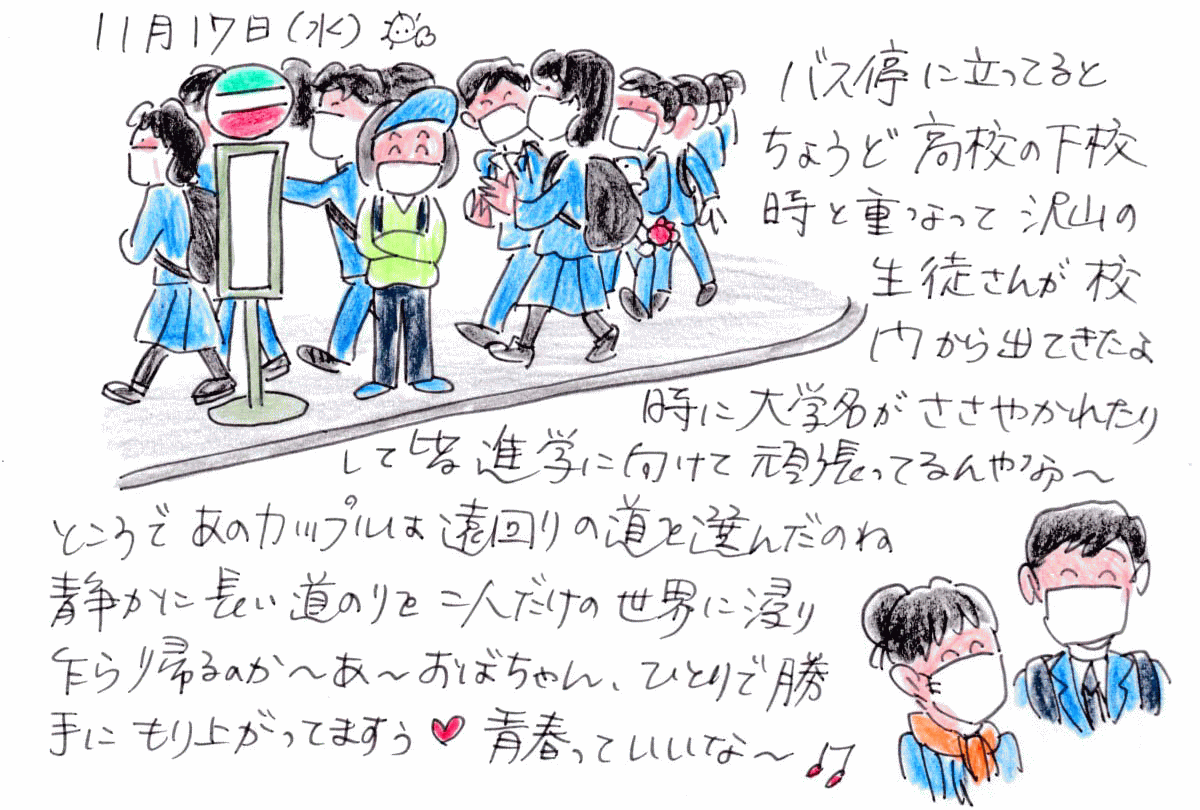 11月17日(水)
バス停に立ってると
ちょうど高校の下校
時と重なって沢山の
生徒さんが校
门から出てきたよ
時に大学名がささやかれたり
して皆進学に向けて頑張ってるんやなぁ〜
ところであのカップルは遠回りの道を選んだのね
静かに長い道のりを二人だけの世界に浸り
乍らり帰るのか〜あ〜おばちゃん、ひとりで勝
手にもり上がってますぅ♥青春っていいな〜♫